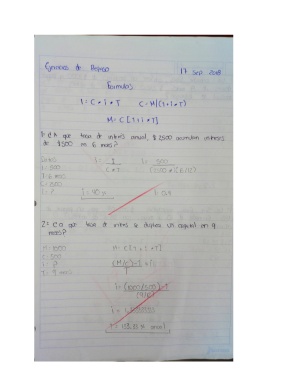 Ejercicios de Repaso 17 Sep 2018
Formulas
I = C * i * T C = M/(1+i*T)
M = C [1 + i * T]
1: ¿A que tasa de interés anual, $2500 acumulan intereses
de $500 en 6 mes?
Datos i = I i = 500
I = 500 C * T (2500 *)(6/12)
T = 6 mes
C = 2500
i = ? i = 40 % i = 0.4
2: ¿A que tasa de interés se duplica un capital en 9
meses?
M = 1000 M = C [1 + i * T]
C = 500 (M/C)-1
i = ?
T = 9 meses i = (1000/500)-1
(9/12)
i = 1.3333
i = 133.33 % anual